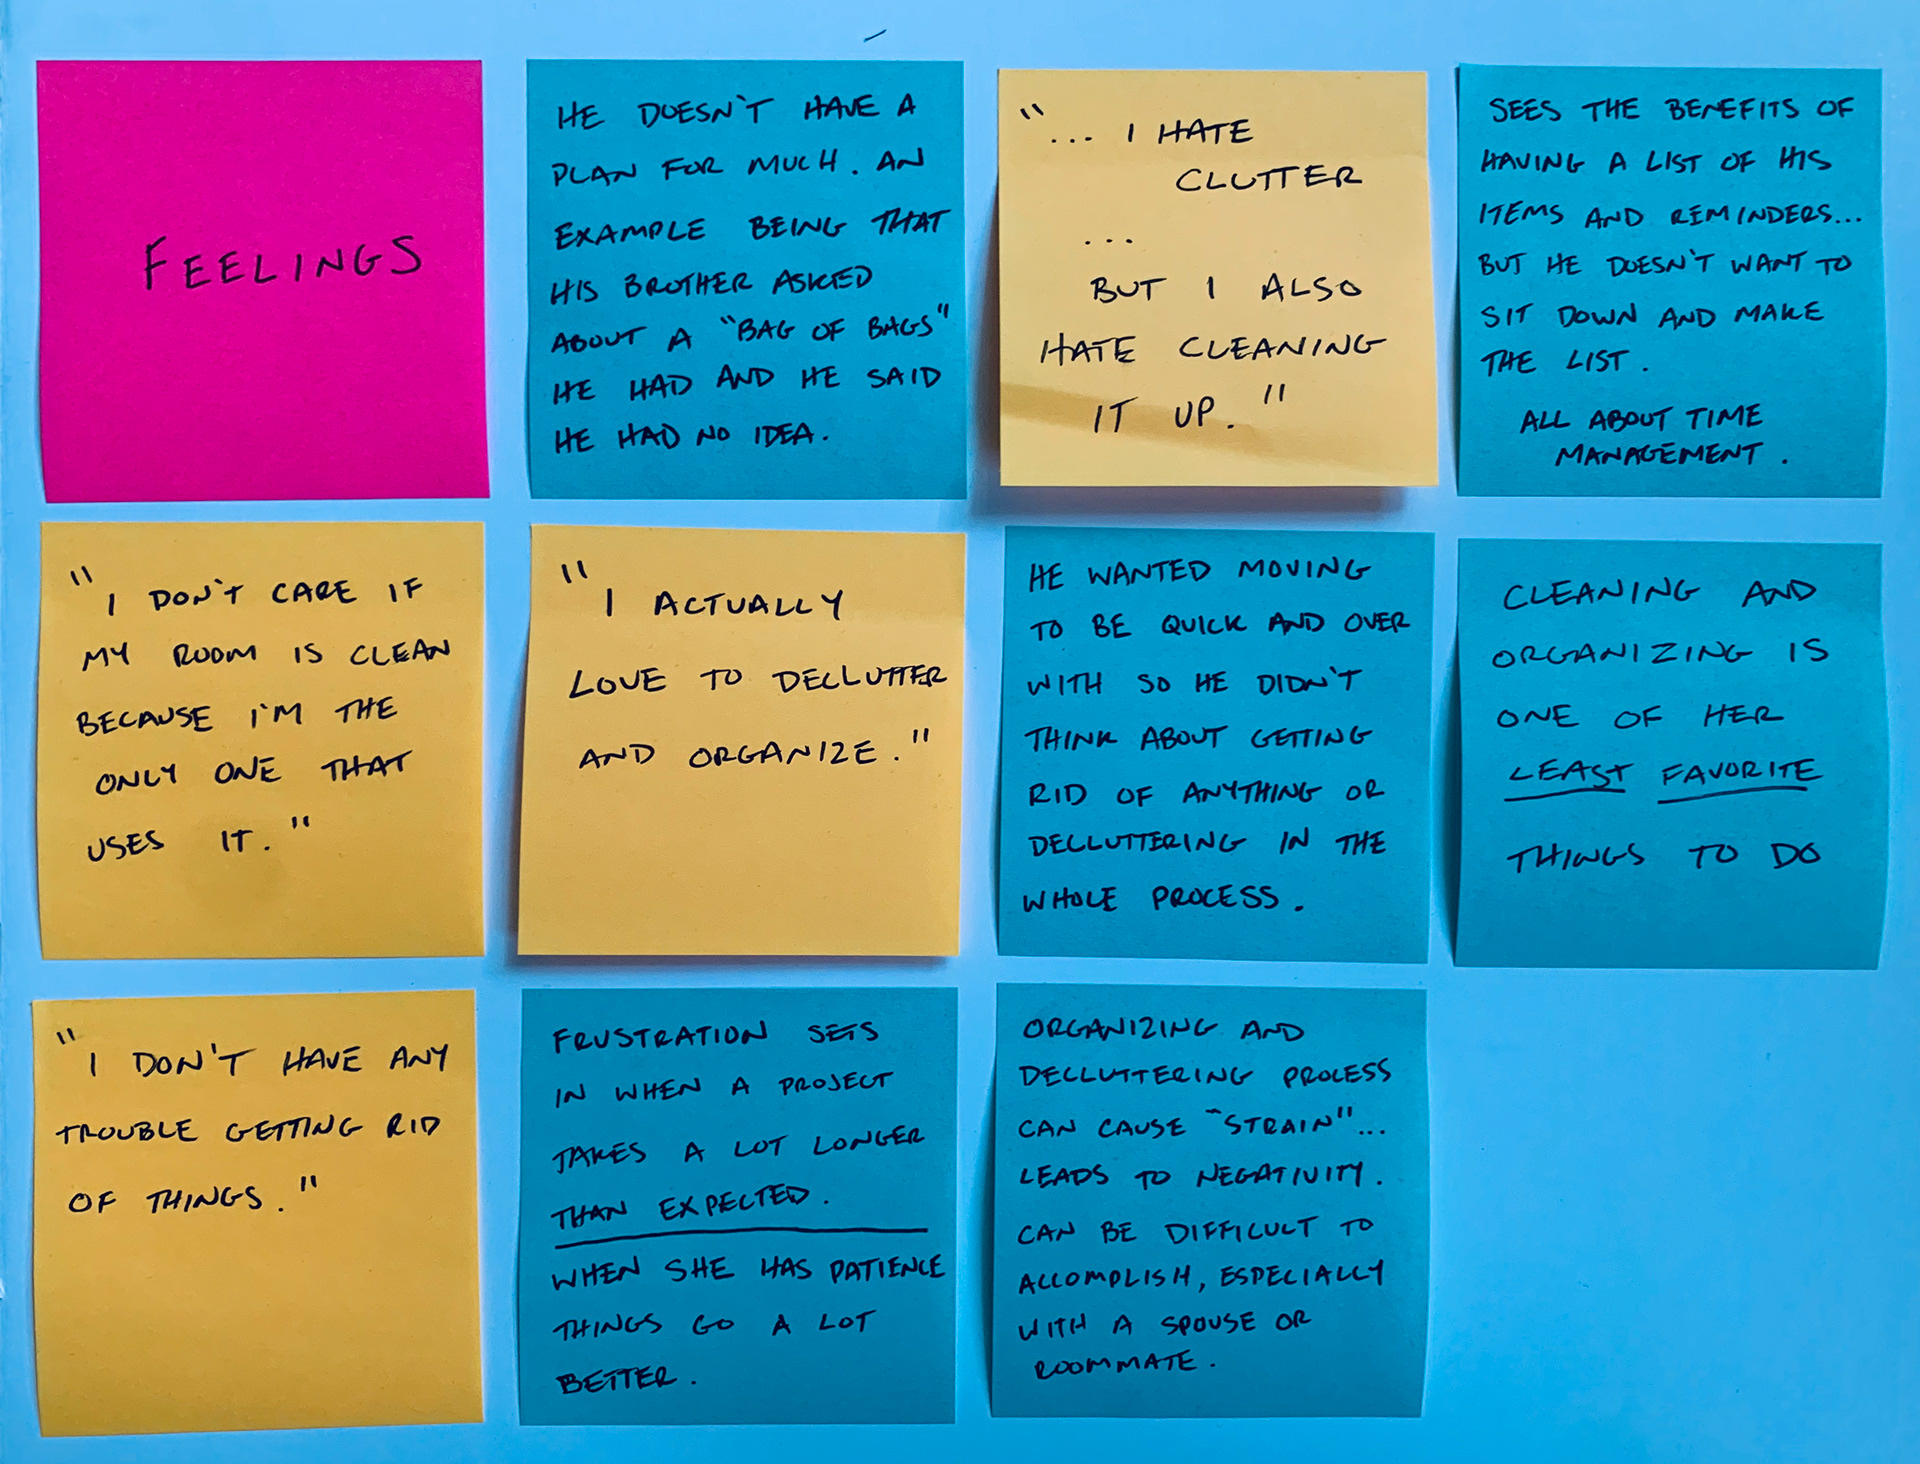 FEELINGS
HE DOESN'T HAVE A
PLAN FOR MUCH. AN
EXAMPLE BEING THAT
HIS BROTHER ASKED
ABOUT A "BAG OF BAGS"
HE HAD AND HE SAID
HE HAD NO IDEA.
"... I HATE
CLUTTER
...
BUT I ALSO
HATE CLEANING
IT UP."
SEES THE BENEFITS OF
HAVING A LIST OF HIS
ITEMS AND REMINDERS...
BUT HE DOESN'T WANT TO
SIT DOWN AND MAKE
THE LIST.
ALL ABOUT TIME
MANAGEMENT.
"I DON'T CARE IF
MY ROOM IS CLEAN
BECAUSE I'M THE
ONLY ONE THAT
USES IT."
"I ACTUALLY
LOVE TO DECLUTTER
AND ORGANIZE."
HE WANTED MOVING
TO BE QUICK AND OVER
WITH SO HE DIDN'T
THINK ABOUT GETTING
RID OF ANYTHING OR
DECLUTTERING IN THE
WHOLE PROCESS.
CLEANING AND
ORGANIZING IS
ONE OF HER
LEAST FAVORITE
THINGS TO DO
"I DON'T HAVE ANY
TROUBLE GETTING RID
OF THINGS."
FRUSTRATION SETS
IN WHEN A PROJECT
TAKES A LOT LONGER
THAN EXPECTED.
WHEN SHE HAS PATIENCE
THINGS GO A LOT
BETTER.
ORGANIZING AND
DECLUTTERING PROCESS
CAN CAUSE "STRAIN"...
LEADS TO NEGATIVITY.
CAN BE DIFFICULT TO
ACCOMPLISH, ESPECIALLY
WITH A SPOUSE OR
ROOMMATE.